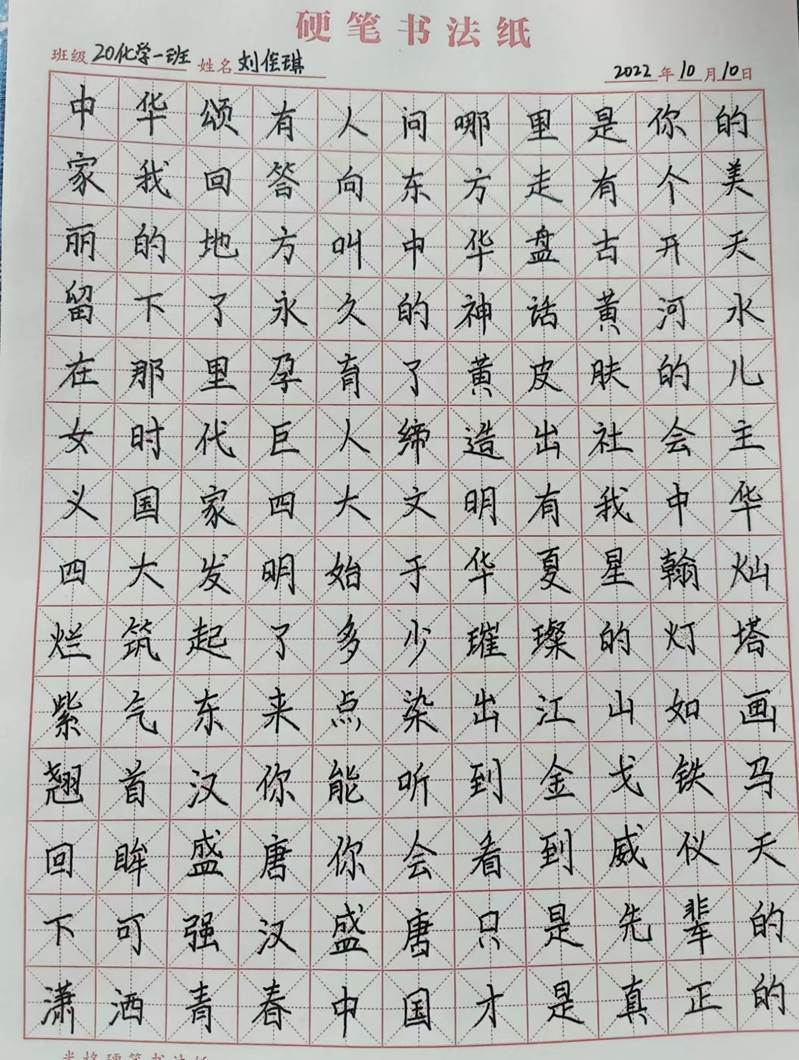 硬笔书法纸
班级 20化学一班 姓名 刘佺琪 2022年10月10日
中华颂有人问哪里是你的
家我回答向东方走有个美
丽的地方叫中华盘古开天
留下了永久的神话黄河水
在那里孕育了黄皮肤的儿
女时代巨人缔造出社会主
义国家四大文明有我中华
四大发明始于华夏星翰灿
烂筑起了多少璀璨的灯塔
紫气东来点染出江山如画
翘首汉你能听到金戈铁马
回眸盛唐你会看到威仪天
下可强汉盛唐只是先辈的
潇洒青春中国才是真正的